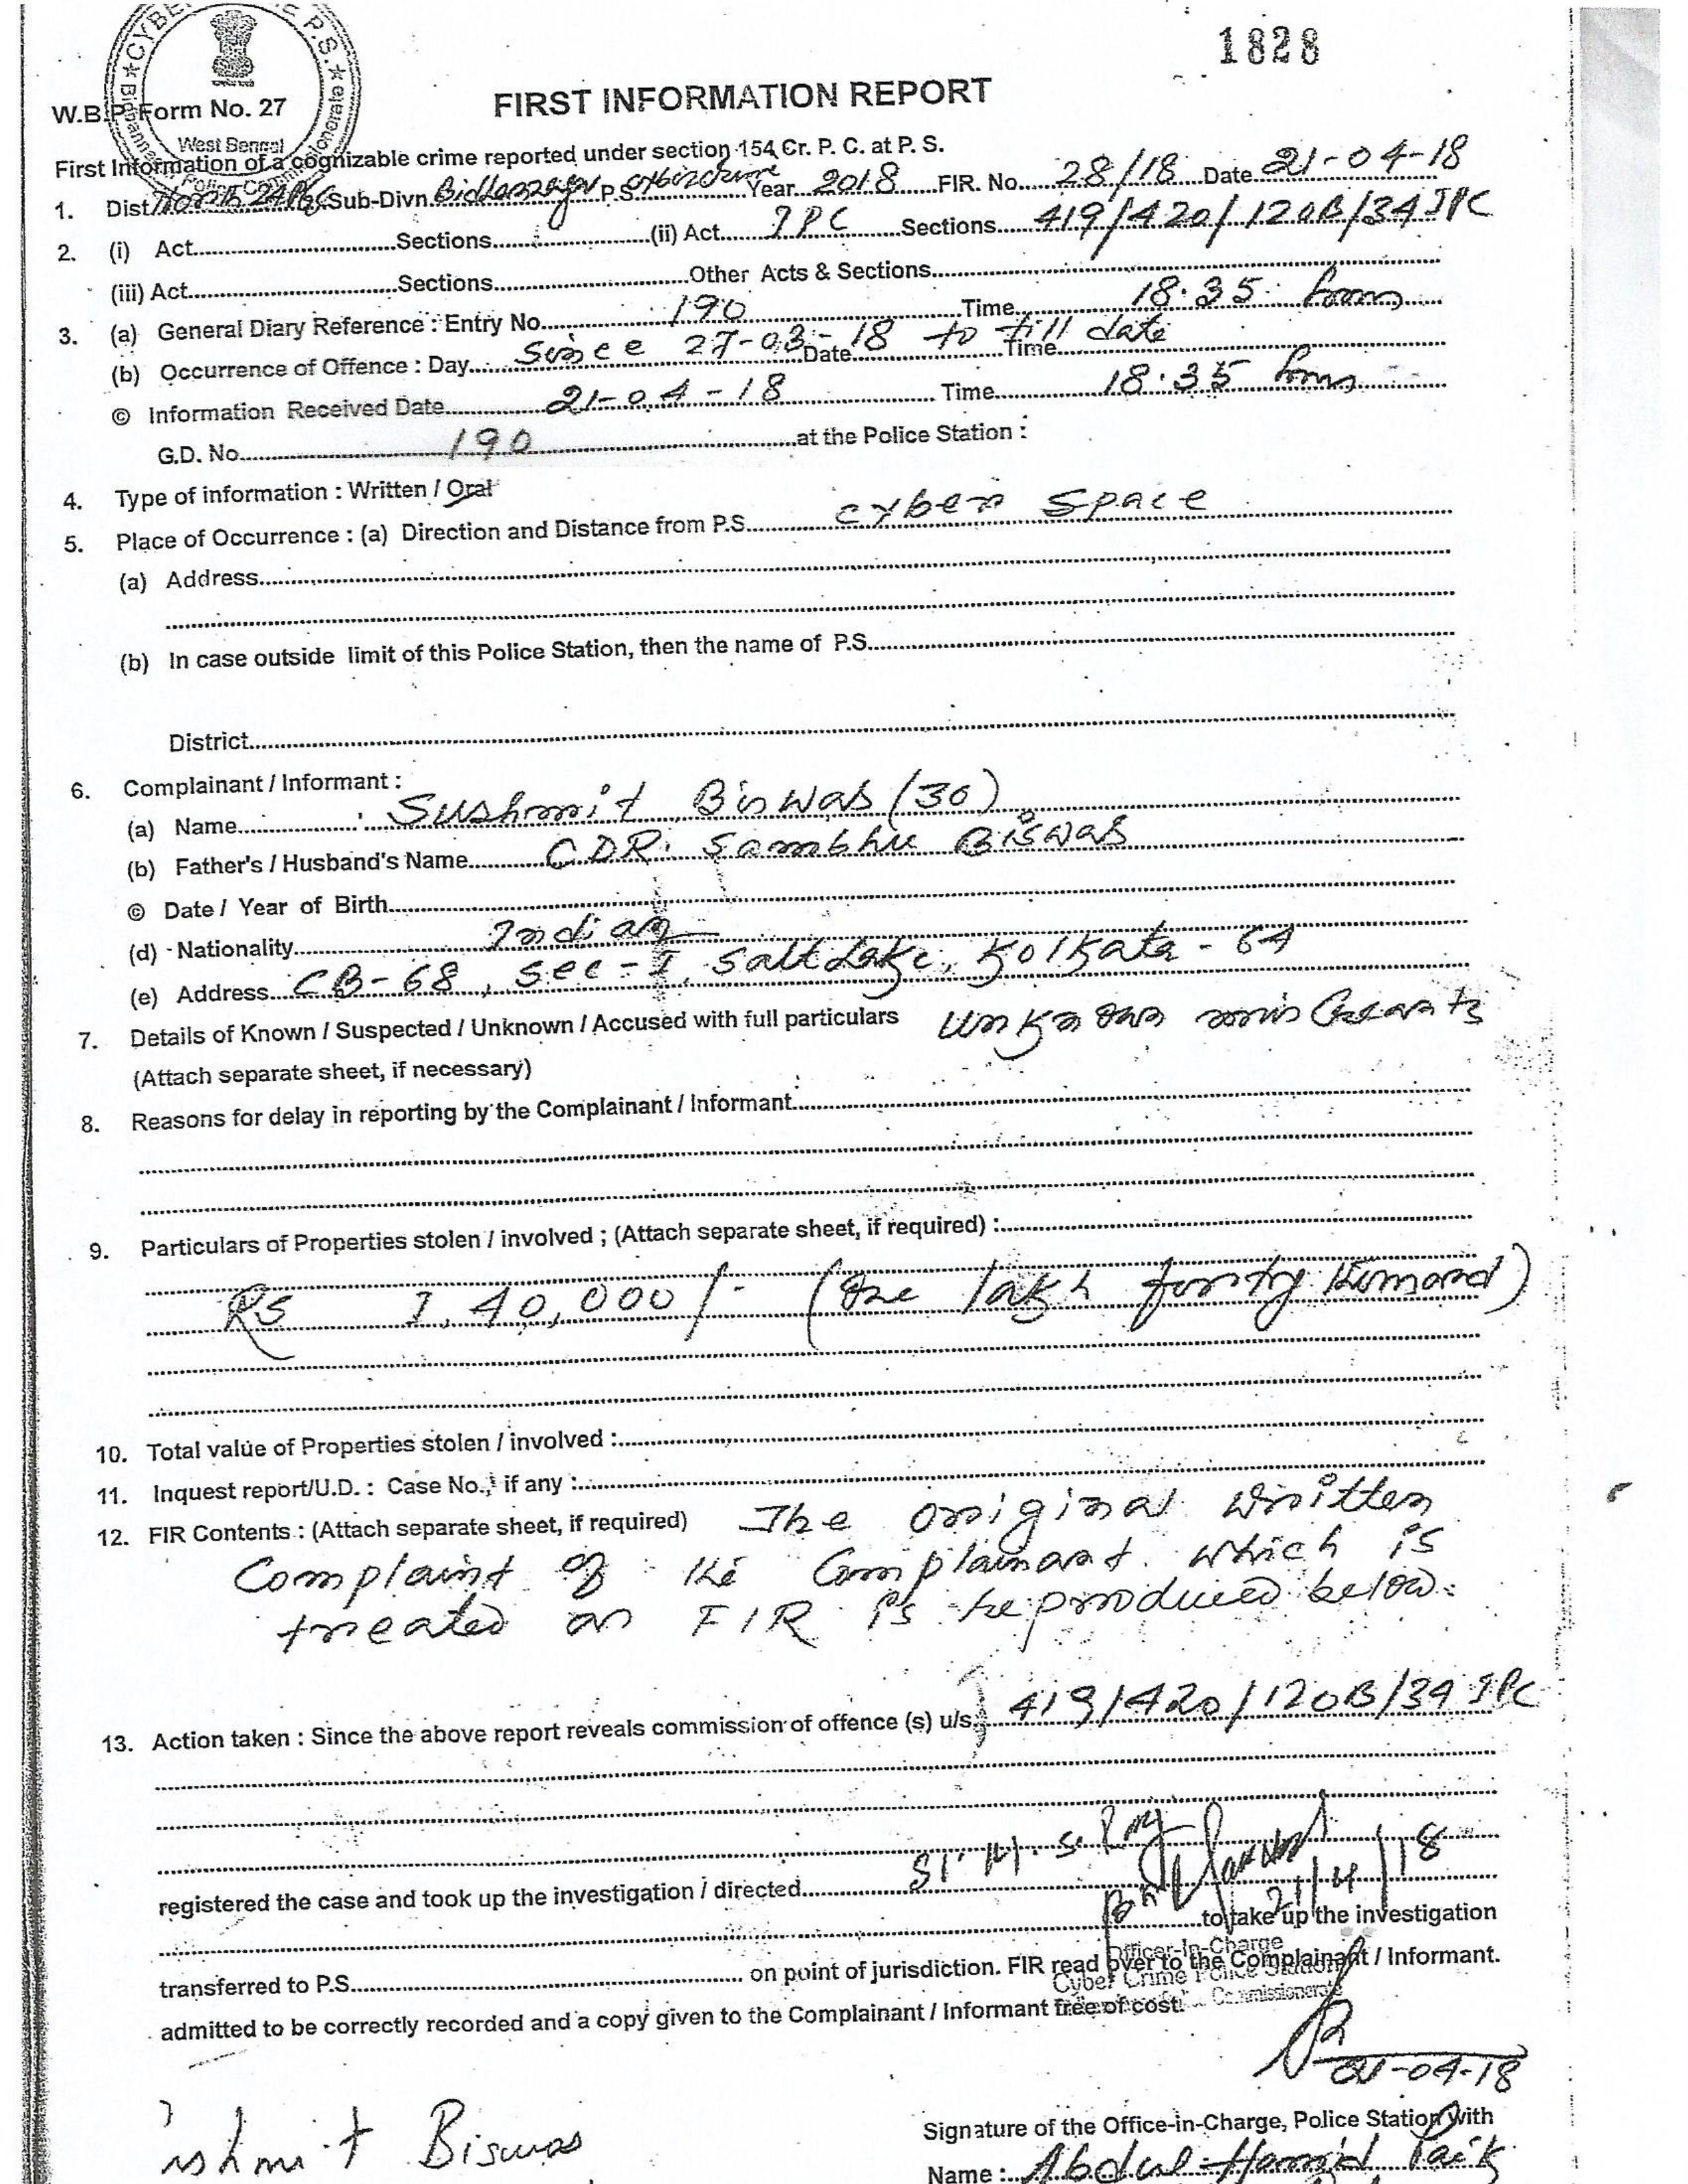 1828
W.B.P. Form No. 27
FIRST INFORMATION REPORT
West Bengal
First Information of a cognizable crime reported under section 154 Cr. P. C. at P. S.
1. Dist. North 24 Pgs Sub-Divn. Bidhannagar P.S. Cybercrime Year 2018 FIR. No. 28/18 Date 21-04-18
2. (i) Act Sections (ii) Act IPC Sections 419/420/120B/34 IPC
(iii) Act Sections Other Acts & Sections
3. (a) General Diary Reference : Entry No. 190 Time 18.35 hrs
(b) Occurrence of Offence : Day Since 27-03-18 to till date Date Time
© Information Received Date 21-04-18 Time 18.35 hrs
G.D. No. 190 at the Police Station :
4. Type of information : Written / Oral
5. Place of Occurrence : (a) Direction and Distance from P.S. cyber space
(a) Address
(b) In case outside limit of this Police Station, then the name of P.S.
District
6. Complainant / Informant :
(a) Name : Sushmit Biswas (30)
(b) Father's / Husband's Name CDR. Sambhu Biswas
© Date / Year of Birth
(d) Nationality Indian
(e) Address CB-68, Sec-I, Salt Lake, Kolkata - 64
7. Details of Known / Suspected / Unknown / Accused with full particulars unknown miscreants
(Attach separate sheet, if necessary)
8. Reasons for delay in reporting by the Complainant / Informant
9. Particulars of Properties stolen / involved ; (Attach separate sheet, if required) :
RS 1,40,000/- (One lakh forty thousand)
10. Total value of Properties stolen / involved :
11. Inquest report/U.D. : Case No., if any :
12. FIR Contents : (Attach separate sheet, if required) The original written
Complaint of the Complainant which is
treated as FIR is reproduced below.
13. Action taken : Since the above report reveals commission of offence (s) u/s. 419/420/120B/34 IPC
registered the case and took up the investigation / directed S. Roy
21/4/18
to take up the investigation
Officer-In-Charge
transferred to P.S. on point of jurisdiction. FIR read over to the Complainant / Informant.
Cyber Crime Police Station
admitted to be correctly recorded and a copy given to the Complainant / Informant free of cost.
21-04-18
Signature of the Office-in-Charge, Police Station with
ushmit Biswas
Name : Abdul Hamid Paik